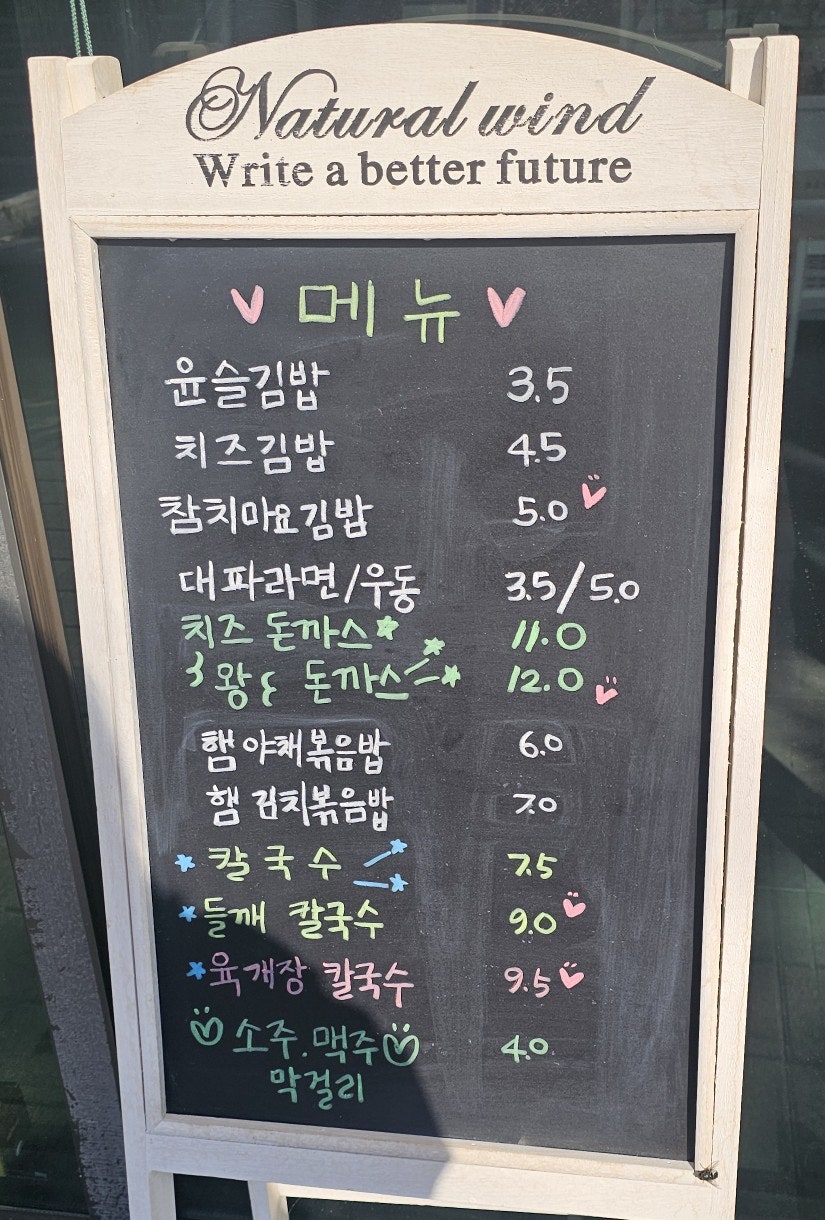 Natural wind
Write a better future
메뉴
윤슬김밥 3.5
치즈김밥 4.5
참치마요김밥 5.0
대파라면/우동 3.5/5.0
치즈 돈까스 11.0
왕 돈까스 12.0
햄 야채볶음밥 6.0
햄 김치볶음밥 7.0
칼국수 7.5
들깨 칼국수 9.0
육개장 칼국수 9.5
소주.맥주 4.0
막걸리